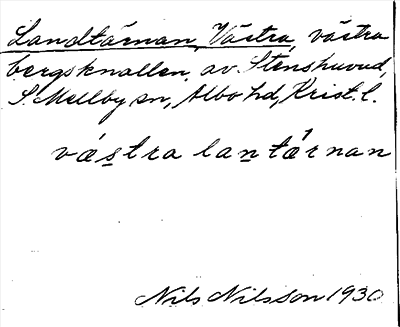 Landtärnan, Västra, västra
bergsknallen av Stenshuvud,
S. Mellby sn, Albo hd, Krist. l.
västra lantærnan
Nils Nilsson 1930